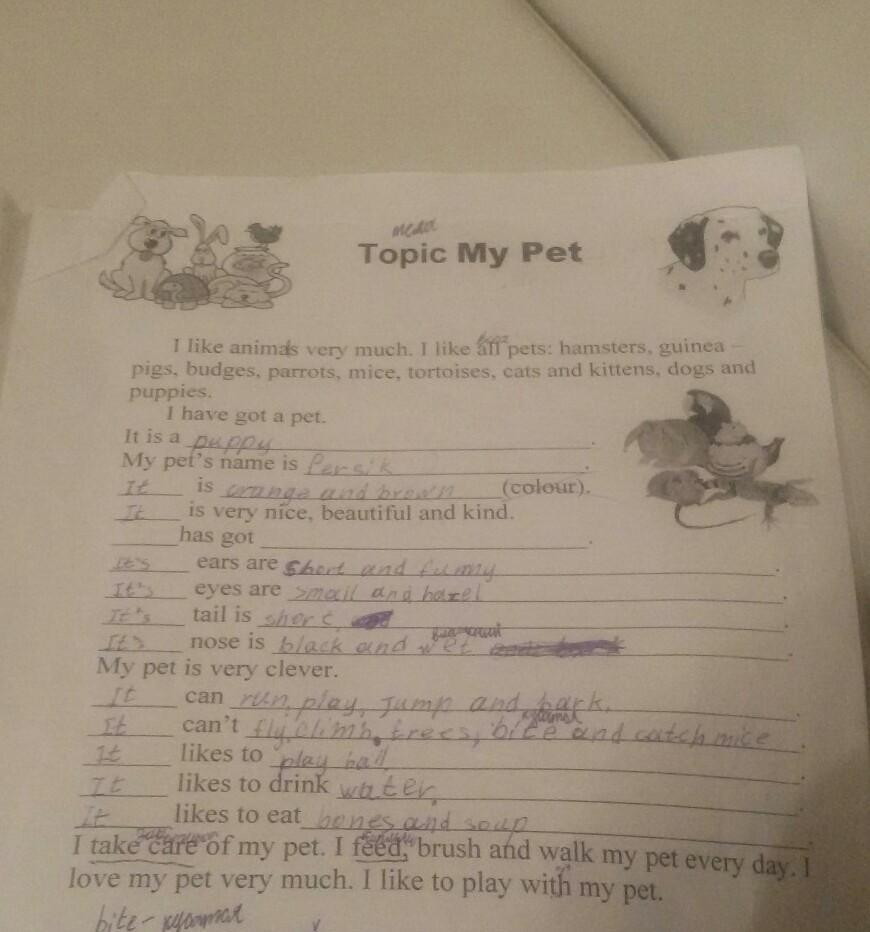 Topic My Pet
I like animals very much. I like all pets: hamsters, guinea –
pigs, budges, parrots, mice, tortoises, cats and kittens, dogs and
puppies.
I have got a pet.
It is a puppy.
My pet's name is Persik.
It is orange and brown (colour).
It is very nice, beautiful and kind.
has got .
It's ears are short and funny.
It's eyes are small and hazel.
It's tail is short.
It's nose is black and wet.
My pet is very clever.
It can run, play, jump and bark.
It can't fly, climb, trees, bite and catch mice.
It likes to play ball.
It likes to drink water.
It likes to eat bones and soup.
I take care of my pet. I feed, brush and walk my pet every day. I
love my pet very much. I like to play with my pet.
bite - кусаться